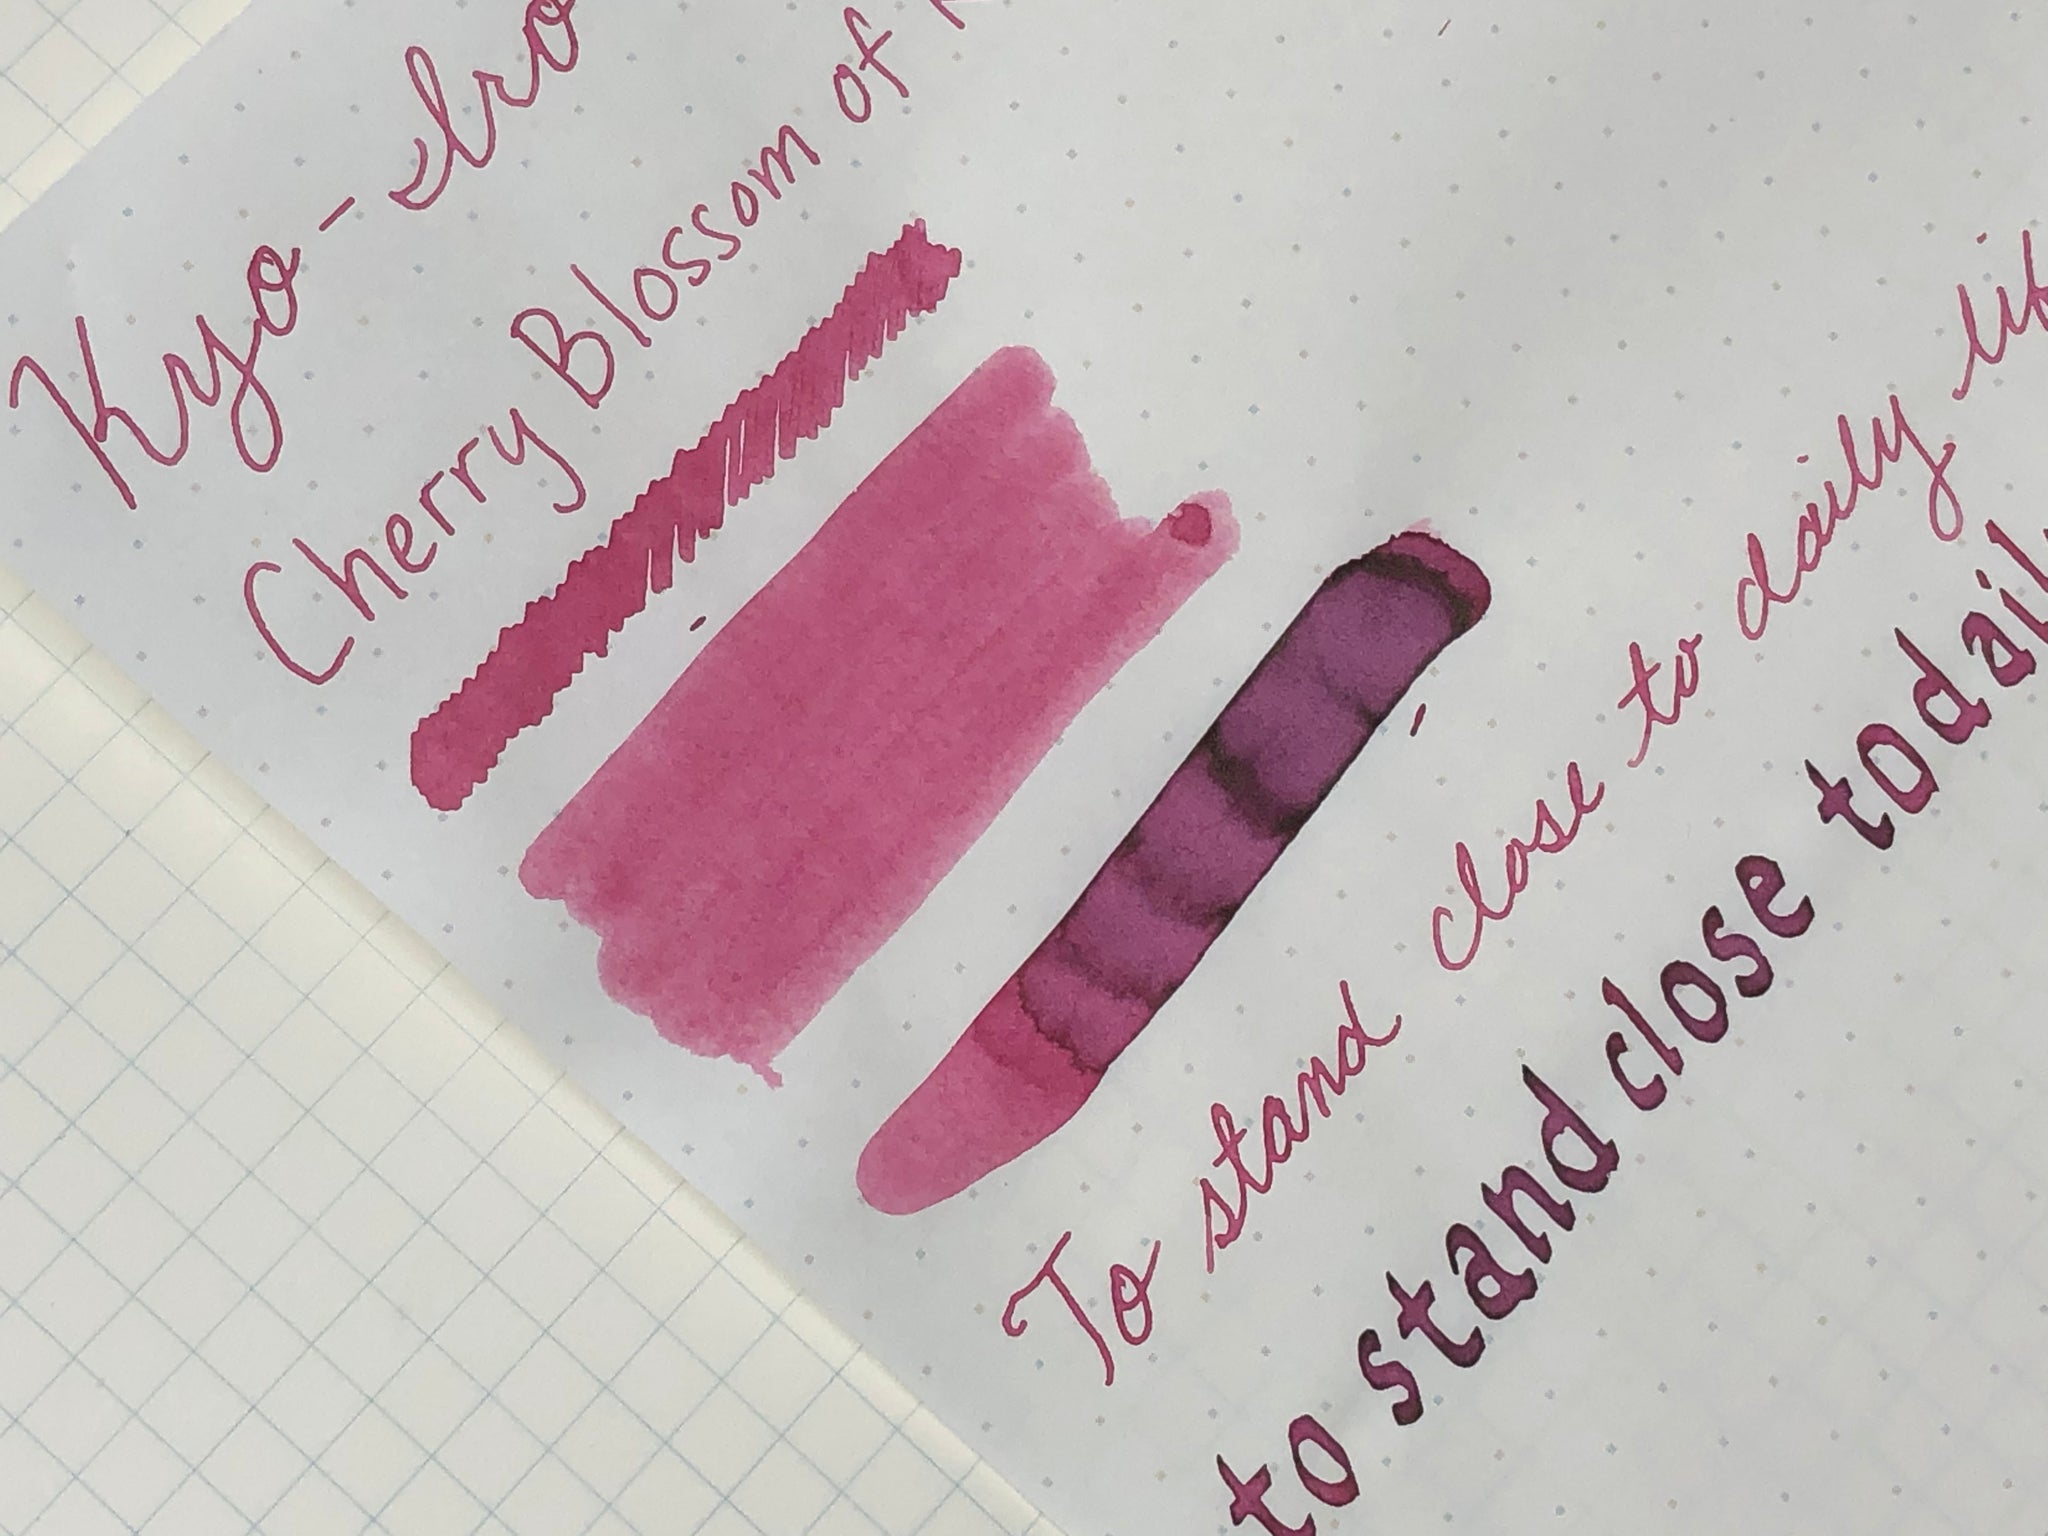 Kyo-Iro
Cherry Blossom of
To stand close to daily
to stand close to dail